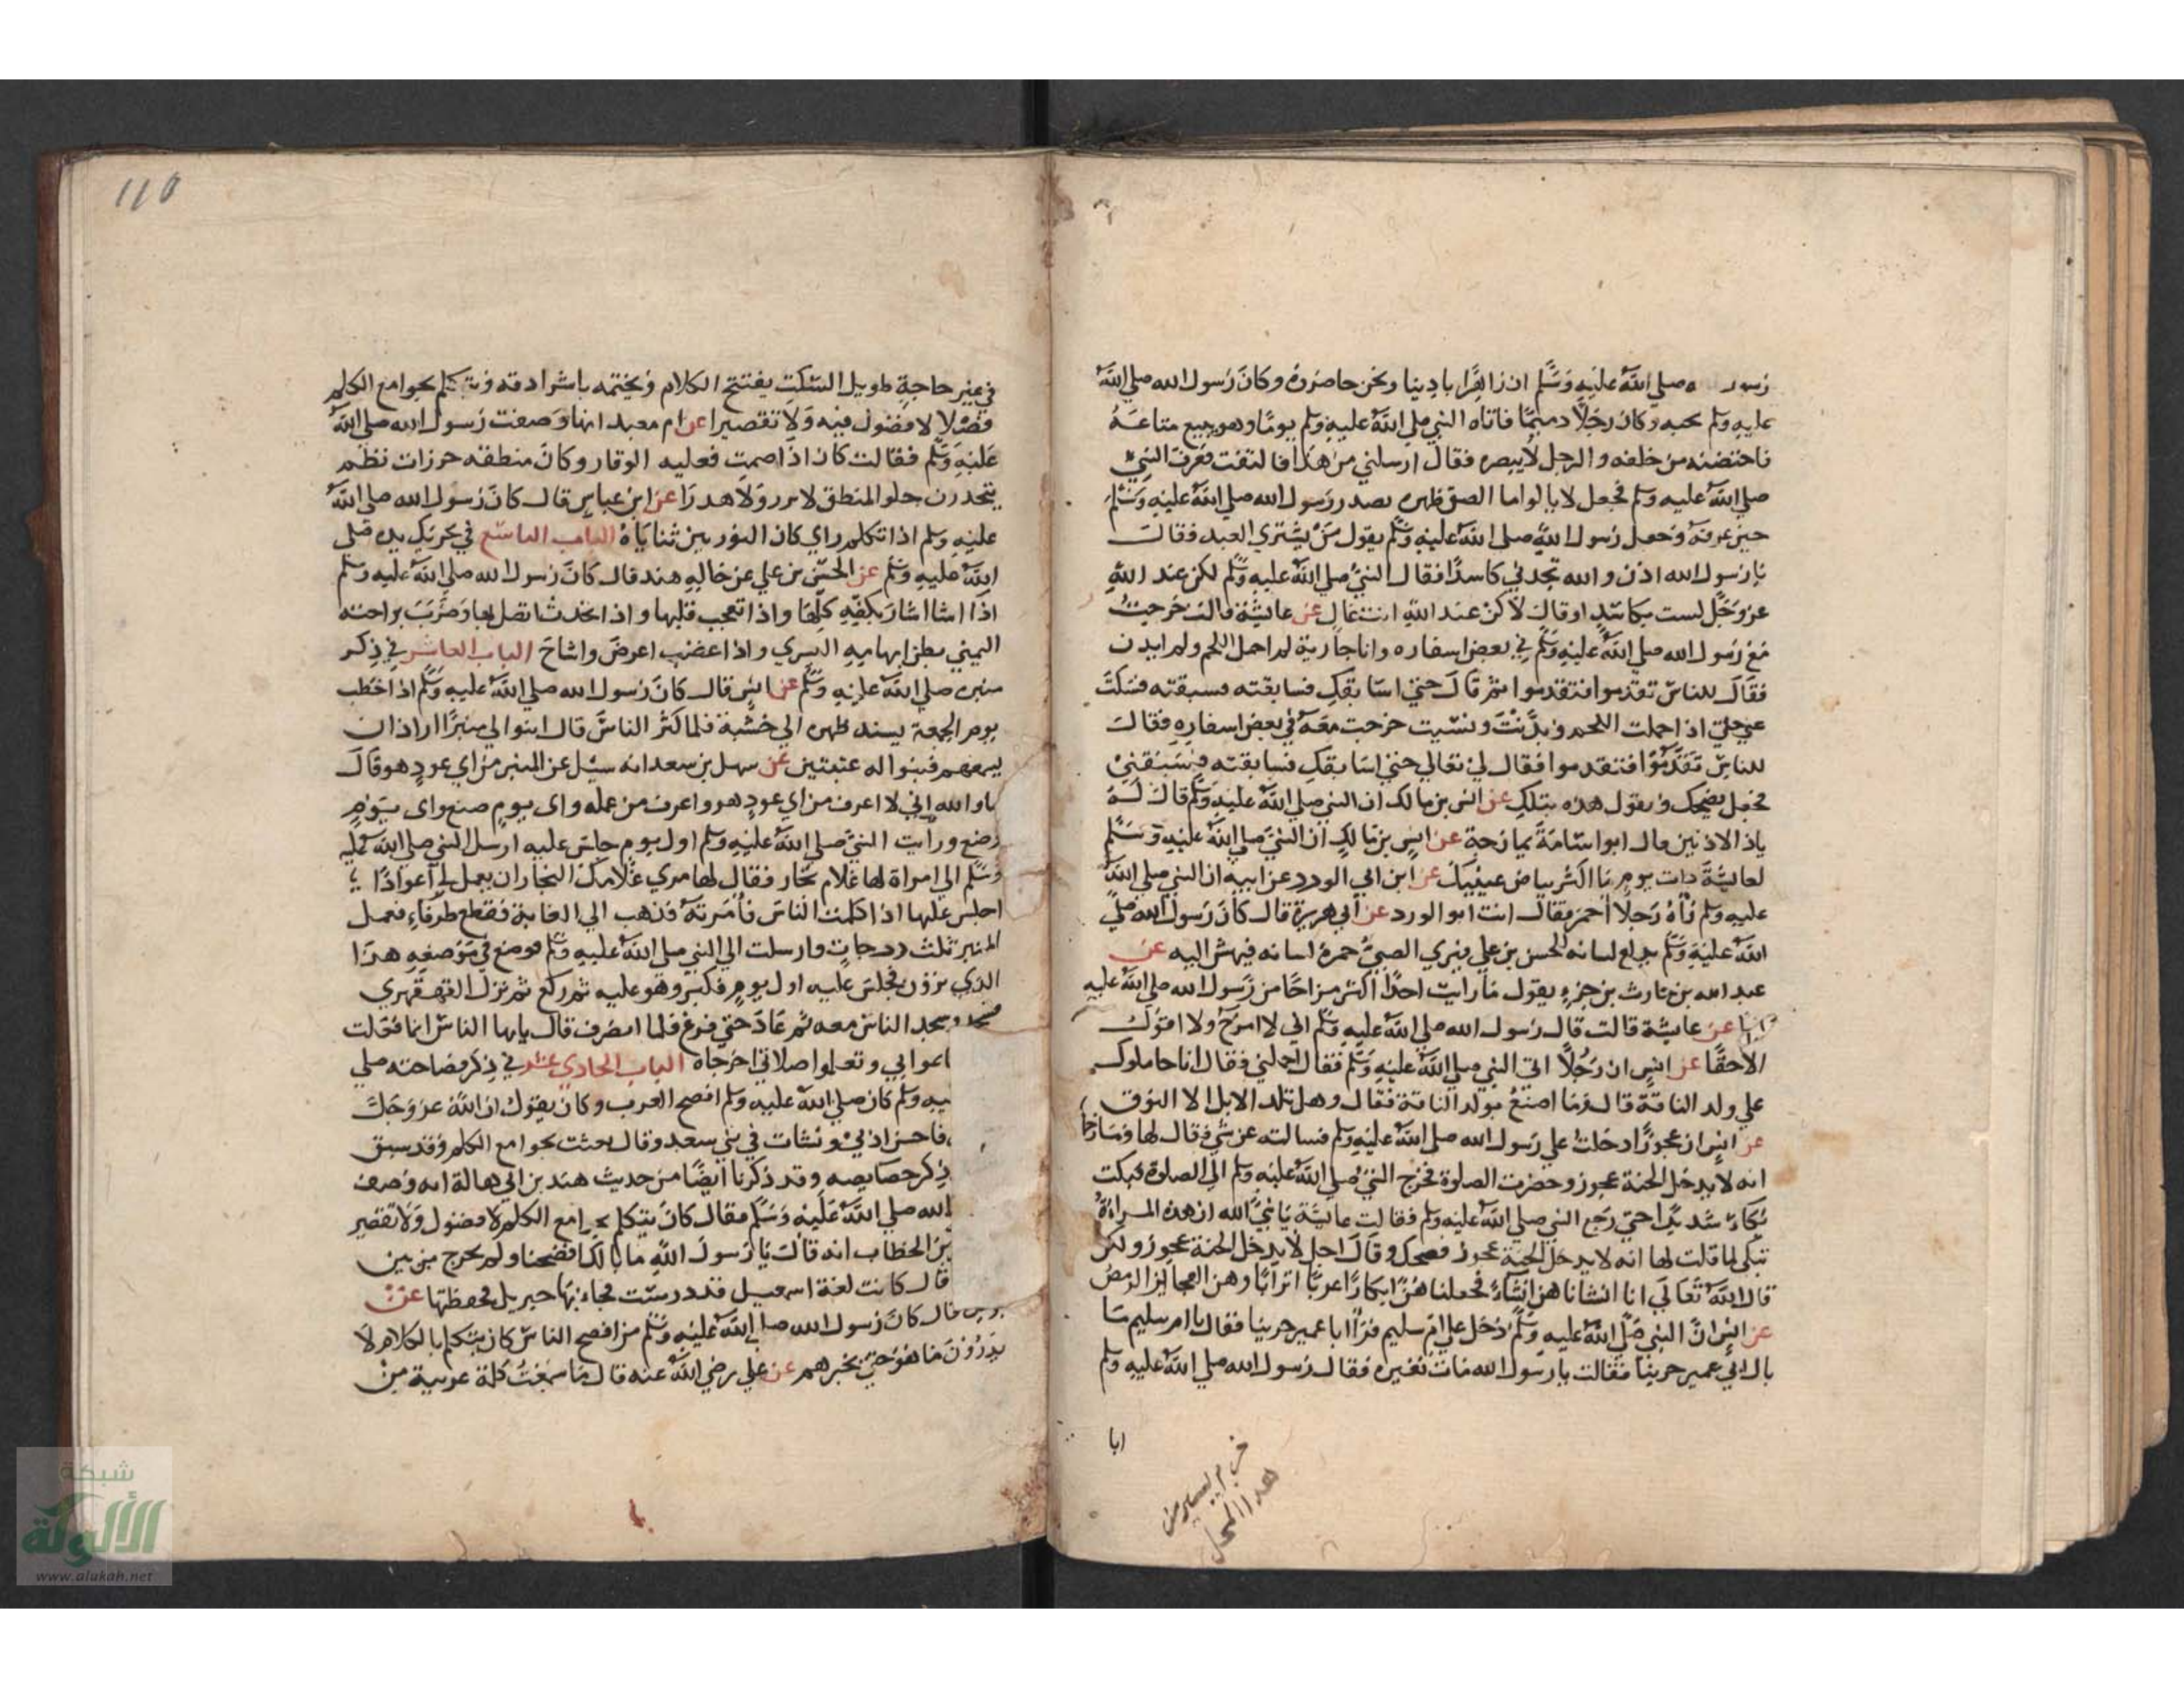 رسول الله صلي الله عليه وسلم ان زاهرا باديتنا ونحن حاضروه وكان رسول الله صلي الله
عليه وسلم يحبه وكان رجلا دميما فاتاه النبي صلي الله عليه وسلم يوما وهو يبيع متاعه
فاحتضنه من خلفه والرجل لا يبصره فقال ارسلني من هذا فالتفت فعرف النبي
صلي الله عليه وسلم فجعل لا يالوا ما الصق ظهره بصدر رسول الله صلي الله عليه وسلم
حين عرفه وجعل رسول الله صلي الله عليه وسلم يقول من يشتري العبد فقال
يا رسول الله اذن والله تجدني كاسدا فقال النبي صلي الله عليه وسلم لكن عند الله
عز وجل لست بكاسد او قال لكن عند الله انت غال عن عايشة قالت خرجت
مع رسول الله صلي الله عليه وسلم في بعض اسفاره وانا جارية لم احمل اللحم ولم ابدن
فقال للناس تقدموا فتقدموا ثم قال حتى اسابقك فسابقته فسبقته فسكت
عني حتي اذا حملت اللحم وبدنت ونسيت خرجت معه في بعض اسفاره فقال
للناس تقدموا فتقدموا فقال لي تعالي حتي اسابقك فسابقته فسبقني
فجعل يضحك ويقول هذه بتلك عن انس بن مالك ان النبي صلي الله عليه وسلم قال له
ياذ الاذنين قال ابو اسامة يمازحه عن انس بن مالك ان النبي صلي الله عليه وسلم
لعايشة ذات يوم ما اكثر بياض عينيك عن ابن ابي الورد عن ابيه ان النبي صلي الله
عليه وسلم رآه رجلا احمر فقال انت ابو الورد عن ابي هريرة قال كان رسول الله صلي
الله عليه وسلم يدلع لسانه للحسن بن علي فيري الصبي حمرة لسانه فيهش اليه عن
عبد الله بن حارث بن جزء يقول ما رايت احدا اكثر مزاحا من رسول الله صلي الله عليه
عن عايشة قالت قال رسول الله صلي الله عليه وسلم اني لا امزح ولا اقول
الا حقا عن انس ان رجلا اتي النبي صلي الله عليه وسلم فقال احملني فقال انا حاملوك
علي ولد الناقة قال وما اصنع بولد الناقة فقال وهل تلد الابل الا النوق
عن انس ان عجوزا دخلت علي رسول الله صلي الله عليه وسلم فسالته عن شي فقال لها ومازحها
انه لا يدخل الجنة عجوز وحضرت الصلوة فخرج النبي صلي الله عليه وسلم الي الصلوة فبكت
بكاء شديدا حتي رجع النبي صلي الله عليه وسلم فقالت عايشة يا نبي الله ان هذه المراة
تبكي لما قلت لها انه لا يدخل الجنة عجوز فضحك وقال اجل لا يدخل الجنة عجوز ولكن
قال الله تعالي انا انشاناهن انشاء فجعلناهن ابكارا عربا اترابا وهن العجايز الرمص
عن انس ان النبي صلي الله عليه وسلم دخل علي ام سليم فراا ابا عمير حزينا فقال يا ام سليم ما
بال ابي عمير حزينا فقالت يا رسول الله مات نغيره فقال رسول الله صلي الله عليه وسلم
ابا
هذا المحل
110
في غير حاجة طويل السكت يفتتح الكلام ويختمه باشداقه ويتكلم بجوامع الكلم
فضلا لا فضول فيه ولا تقصيرا عن ام معبد انها وصفت رسول الله صلي الله
عليه وسلم فقالت كان اذا صمت فعليه الوقار وكان منطقه خرزات نظم
يتحدرن حلو المنطق لا نزر ولا هدرا عن ابن عباس قال كان رسول الله صلي الله
عليه وسلم اذا تكلم راي كان النور بين ثناياه الباب التاسع في تحريك يده صلي
الله عليه وسلم عن الحسن بن علي عن خاله هند قال كان رسول الله صلي الله عليه وسلم
اذا اشا اشار بكفه كلها واذا تعجب قلبها واذا تحدث اتصل بها وضرب براحته
اليمني بطن ابهامه اليسري واذا غضب اعرض واشاح الباب العاشر في ذكر
منبره صلي الله عليه وسلم عن انس قال كان رسول الله صلي الله عليه وسلم اذا خطب
يوم الجمعة يسند ظهره الي خشبة فلما كثر الناس قال ابنوا لي منبرا اراد ان
يسمعهم فبنوا له عتبتين عن سهل بن سعد انه سيل عن المنبر من اي عود هو قال
اما والله اني لا اعرف من اي عود هو واعرف من عمله واي يوم صنع واي يوم
وضع ورايت النبي صلي الله عليه وسلم اول يوم جلس عليه ارسل النبي صلي الله عليه
وسلم الي امراة لها غلام نجار فقال لها مري غلامك النجار ان يعمل لي اعوادا
اجلس عليها اذا كلمت الناس فامرته فذهب الي الغابة فقطع طرفاء فعمل
المنبر ثلث درجات وارسلت الي النبي صلي الله عليه وسلم فوضع في موضعه هذا
الذي ترون فجلس عليه اول يوم فكبر وهو عليه ثم ركع ثم نزل القهقهري
فسجد وسجد الناس معه ثم عاد حتي فرغ فلما انصرف قال يايها الناس انما فعلت
لتاتموا بي وتعلموا صلاتي اخرجاه الباب الحادي عشر في ذكر فصاحته صلي
عليه وسلم كان صلي الله عليه وسلم افصح العرب وكان يقول ان الله عز وجل
فاحسن ادبي ونشات في بني سعد وقال بعثت بجوامع الكلم وقد سبق
ذكر خصايصه وقد ذكرنا ايضا من حديث هند بن ابي هالة انه وصف
الله صلي الله عليه وسلم فقال كان يتكلم بجوامع الكلم لا فضول ولا تقصير
بن الخطاب انه قال يا رسول الله مالك افصحنا ولم تخرج من بين
قال كانت لغة اسمعيل قد درست فجاء بها جبريل فحفظتها عن
قال كان رسول الله صلي الله عليه وسلم من افصح الناس كان يتكلم بالكلام لا
يدرون ما هو حتي يخبرهم عن علي رضي الله عنه قال ما سمعت كلمة عربية من
شبكة
الألوكة
www.alukah.net